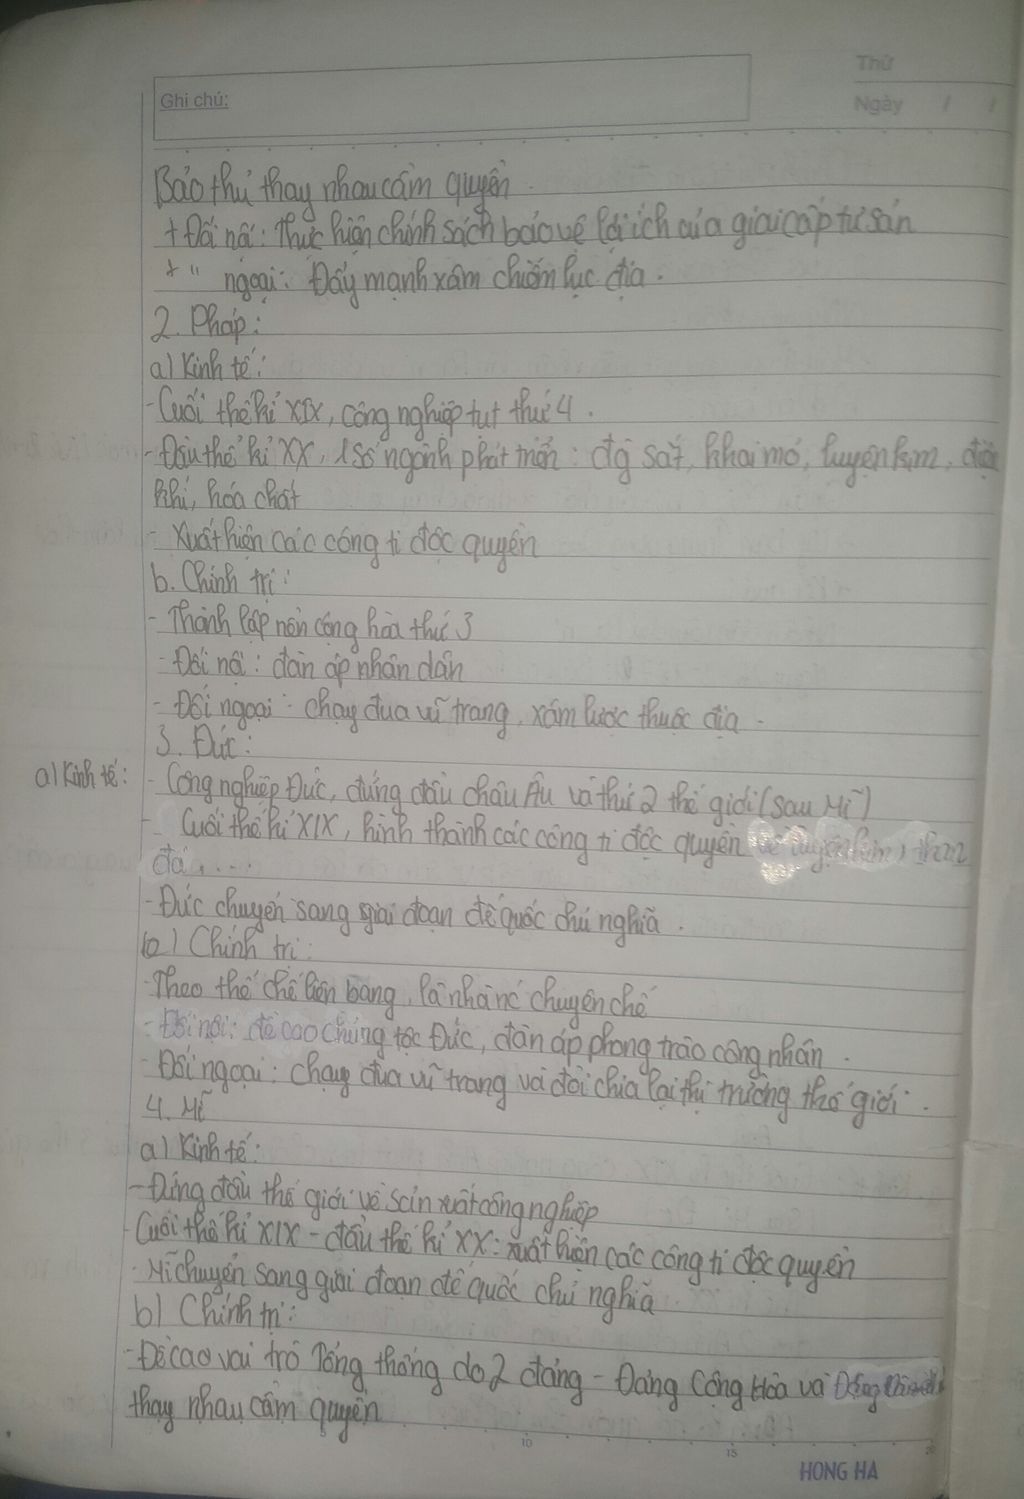 Thứ
Ghi chú:
Ngày / /
Bảo thủ thay nhau cầm quyền
+ Đối nội: Thực hiện chính sách bảo vệ lợi ích của giai cấp tư sản
+ " ngoại: Đẩy mạnh xâm chiếm lục địa.
2. Pháp:
a) Kinh tế:
- Cuối thế kỉ XIX, công nghiệp tụt thứ 4.
- Đầu thế kỉ XX, 1 số ngành phát triển: đg sắt, khai mỏ, luyện kim, điện
khí, hóa chất
- Xuất hiện các công ti độc quyền
b. Chính trị:
- Thành lập nền cộng hòa thứ 3
- Đối nội: đàn áp nhân dân
- Đối ngoại: chạy đua vũ trang, xâm lược thuộc địa.
3. Đức:
a) Kinh tế: - Công nghiệp Đức, đứng đầu châu Âu và thứ 2 thế giới (sau Mĩ)
- Cuối thế kỉ XIX, hình thành các công ti độc quyền về luyện kim, than
đá, ....
- Đức chuyển sang giai đoạn đế quốc chủ nghĩa.
b) Chính trị:
- Theo thể chế liên bang, là nhà nc chuyên chế
- Đối nội: đề cao chủng tộc Đức, đàn áp phong trào công nhân.
- Đối ngoại: chạy đua vũ trang và đòi chia lại thị trường thế giới.
4. Mĩ
a) Kinh tế:
- Đứng đầu thế giới về sản xuất công nghiệp
- Cuối thế kỉ XIX - đầu thế kỉ XX: xuất hiện các công ti độc quyền
- Mĩ chuyển sang giai đoạn đế quốc chủ nghĩa
b) Chính trị:
- Đề cao vai trò Tổng thống do 2 đảng - Đảng Cộng Hòa và Đảng
thay nhau cầm quyền
10 15 20
HONG HA